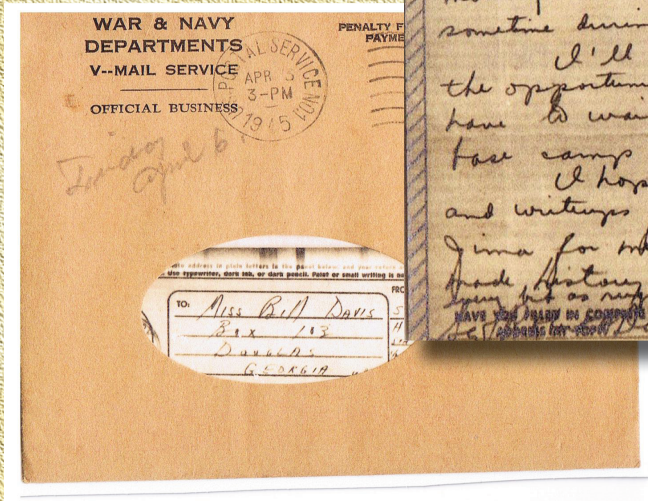 WAR & NAVY
DEPARTMENTS
V--MAIL SERVICE
OFFICIAL BUSINESS
U.S. POSTAL SERVICE NO.1
APR 5
3-PM
1945
PENALTY F
PAYME
Friday
April 6
address in plain letters in the panel below, and your return
Use typewriter, dark ink, or dark pencil. Faint or small writing is no
FRO
TO:
MISS BILL DAVIS
BOX 103
DOUGLAS
GEORGIA
sometime durin
I'll
the opportun
have to wai
base camp
I hop
and writeups
Jima for m
made history
HAVE YOU FILLED IN COMPLETE
ADDRESS AT TOP?